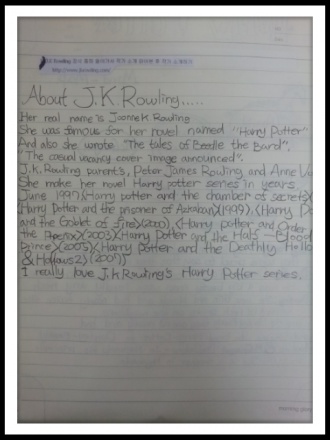 J.K Rowling
http://www.jkrowling.com/
About J.K Rowling.....
Her real name is Joanne K Rowling
She was famous for her novel named "Harry Potter"
And also she wrote "The tales of Beedle the Bard",
"The casual vacancy cover image announced".
J.K. Rowling parent's, Peter James Rowling and Anne
She make her novel Harry potter series in years
June 1997(Harry potter and the chamber of secrets)
Harry Potter and the prisoner of Azkaban)(1999), (Harry
and the Goblet of fire)(2000), (Harry potter and Order
the Phoenix)(2003)(Harry Potter and the Half-Blood
Prince)(2005)(Harry Potter and the Deathly Hallo
& Hallows2)(2007)
I really love J.K Rowling's Harry Potter series.